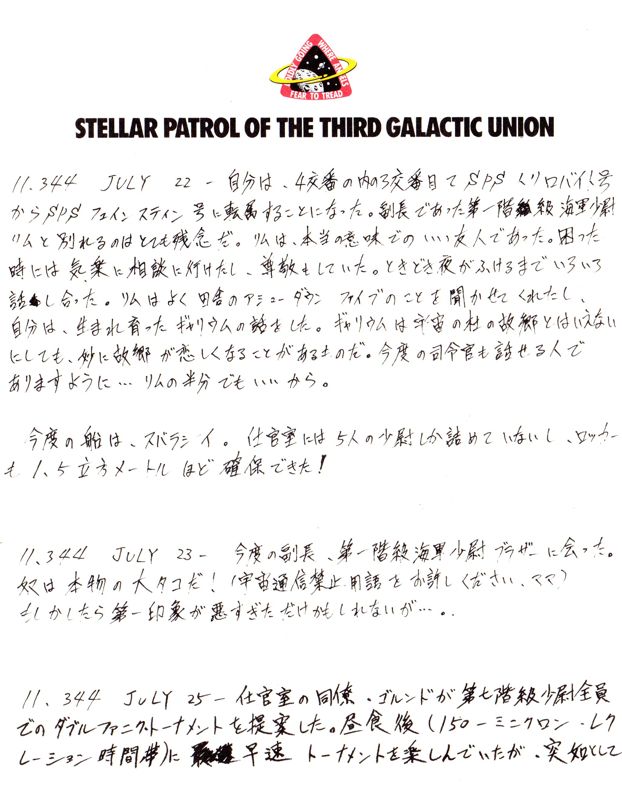 BOLDLY GOING WHERE ANGELS
FEAR TO TREAD
STELLAR PATROL OF THE THIRD GALACTIC UNION
11.344 JULY 22 - 自分は、4交番の内の3交番目でSPS
からSPS フェインスティン号に転属することになった。副長であった第一階級海軍少尉
リムと別れるのはとても残念だ。リムは、本当の意味でのいい友人であった。困った
時には気楽に相談に行けたし、尊敬もしていた。ときどき夜がふけるまでいろいろ
話し合った。リムはよく田舎のアシューダウン ファイブのことを聞かせてくれたし、
自分は、生まれ育ったギャリウムの話をした。ギャリウムは宇宙の杜の故郷とはいえない
にしても、妙に故郷が恋しくなることがあるものだ。今度の司令官も話せる人で
ありますように… リムの半分でもいいから。
今度の船は、スバラシイ。仕官室には5人の少尉しか詰めていないし、ロッカー
も1.5立方メートルほど確保できた!
11.344 JULY 23 - 今度の副長、第一階級海軍少尉ブラザーに会った。
奴は本物の大タコだ!(宇宙通信禁止用語をお許しください、ママ)
もしかしたら第一印象が悪すぎただけかもしれないが…。
11.344 JULY 25 - 仕官室の同僚・ゴルンドが第七階級少尉全員
でのダブルファニクトーナメントを提案した。昼食後(150-ミニクロン・レク
レーション時間帯)に早速トーナメントを楽しんでいたが、突如として